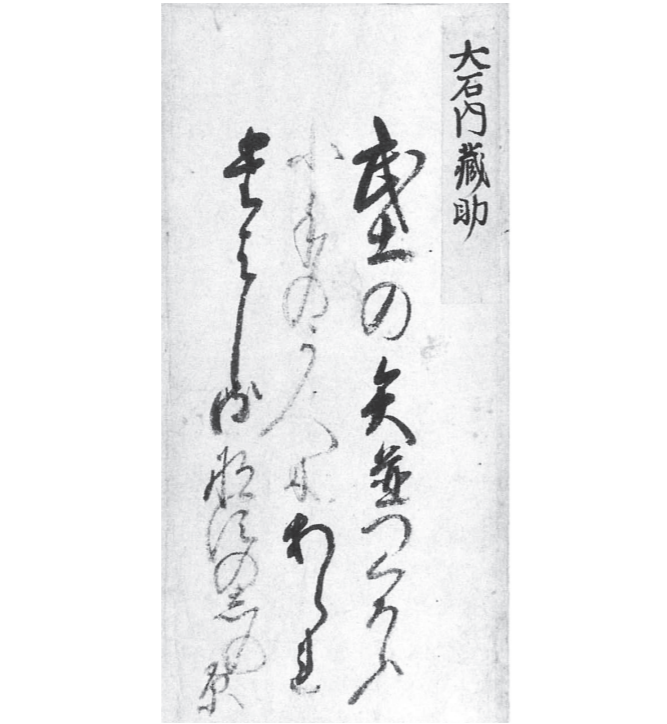 大石内藏助
武士の矢並つくろふ
小手のうへにあられ
たはしる那須の志の原